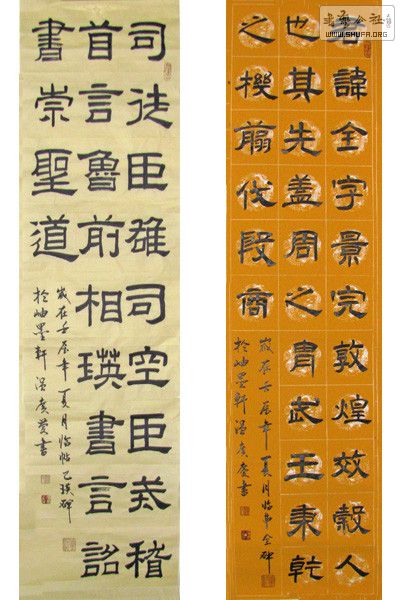 司徒臣雄司空臣戒稽
首言魯前相瑛書言詔
書崇聖道
歲在壬辰年夏月臨帖乙瑛碑
於岫墨軒溫廣慶書
君諱全字景完敦煌效穀人
也其先蓋周之胄武王秉乾
之機翦伐殷商
歲在壬辰年夏月臨曹全碑
於岫墨軒溫廣慶書
書法公社
WWW.SHUFA.ORG